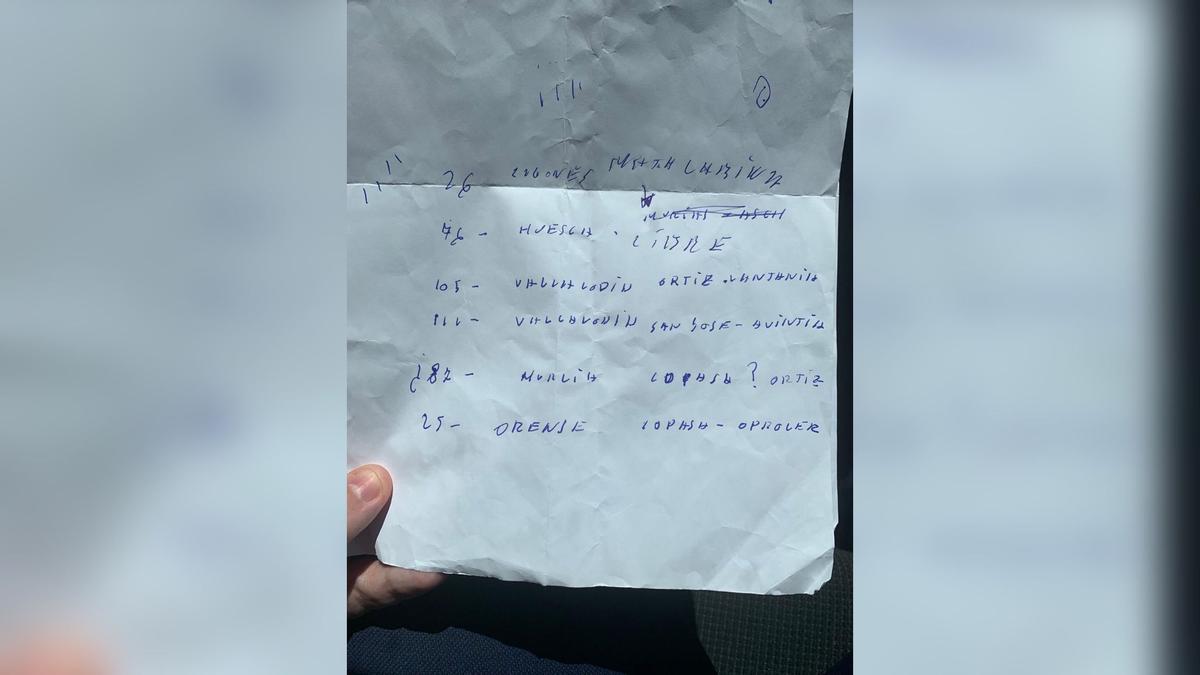 26 LUGONES MATALABLIMA
76 - HUESCA . LIBRE
105 - VALLALODIN ORTIZ . CANTANIA
111 - VALLALODIN SAN JOSE - AVINTIA
¿82 - MURCIA COPASA ? ORTIZ
25 - ORENSE COPASA - OPROLER